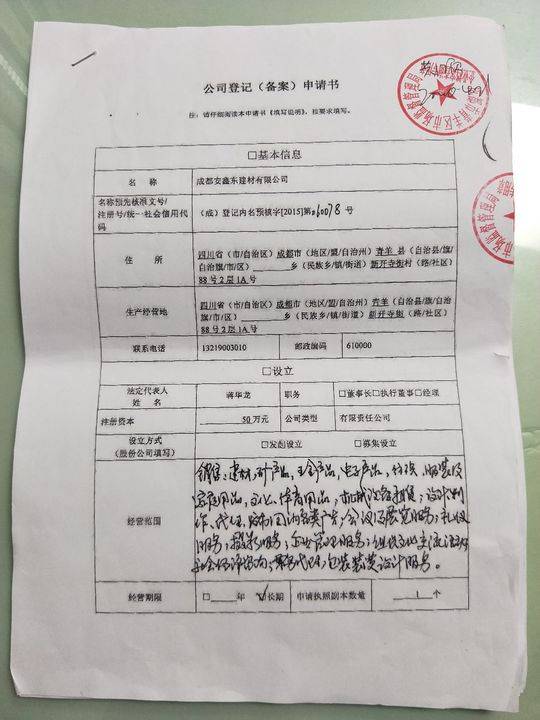 公司登记（备案）申请书
注：请仔细阅读本申请书《填写说明》，按要求填写。
□基本信息
名 称 成都安鑫东建材有限公司
名称预先核准文号/
注册号/统一社会信用代
码
（成）登记内名预核字[2015]第060078号
住 所
四川省（市/自治区）成都市（地区/盟/自治州）青羊县（自治县/旗/
自治旗/市/区）______乡（民族乡/镇/街道）新开寺街村（路/社区）
88号2层1A号
生产经营地
四川省（市/自治区）成都市（地区/盟/自治州）青羊（自治县/旗/自治旗
/市/区）______乡（民族乡/镇/街道）新开寺街（路/社区）
88号2层1A号
联系电话 13219003010 邮政编码 610000
□设立
法定代表人
姓 名
蒋华龙 职务 □董事长□执行董事□经理
注册资本 50万元 公司类型 有限责任公司
设立方式
（股份公司填写）
□发起设立 □募集设立
经营范围
销售：建材，矿产品，五金产品，电子产品，
家庭用品，文化、体育用品；机械设备租赁；设计制
作、代理、发布国内各类广告；会议及展览服务；礼仪
服务；摄影服务；企业管理服务；组织文化交流活动；
包装装潢设计服务。
经营期限 □____年 ☑长期 申请执照副本数量 1 个